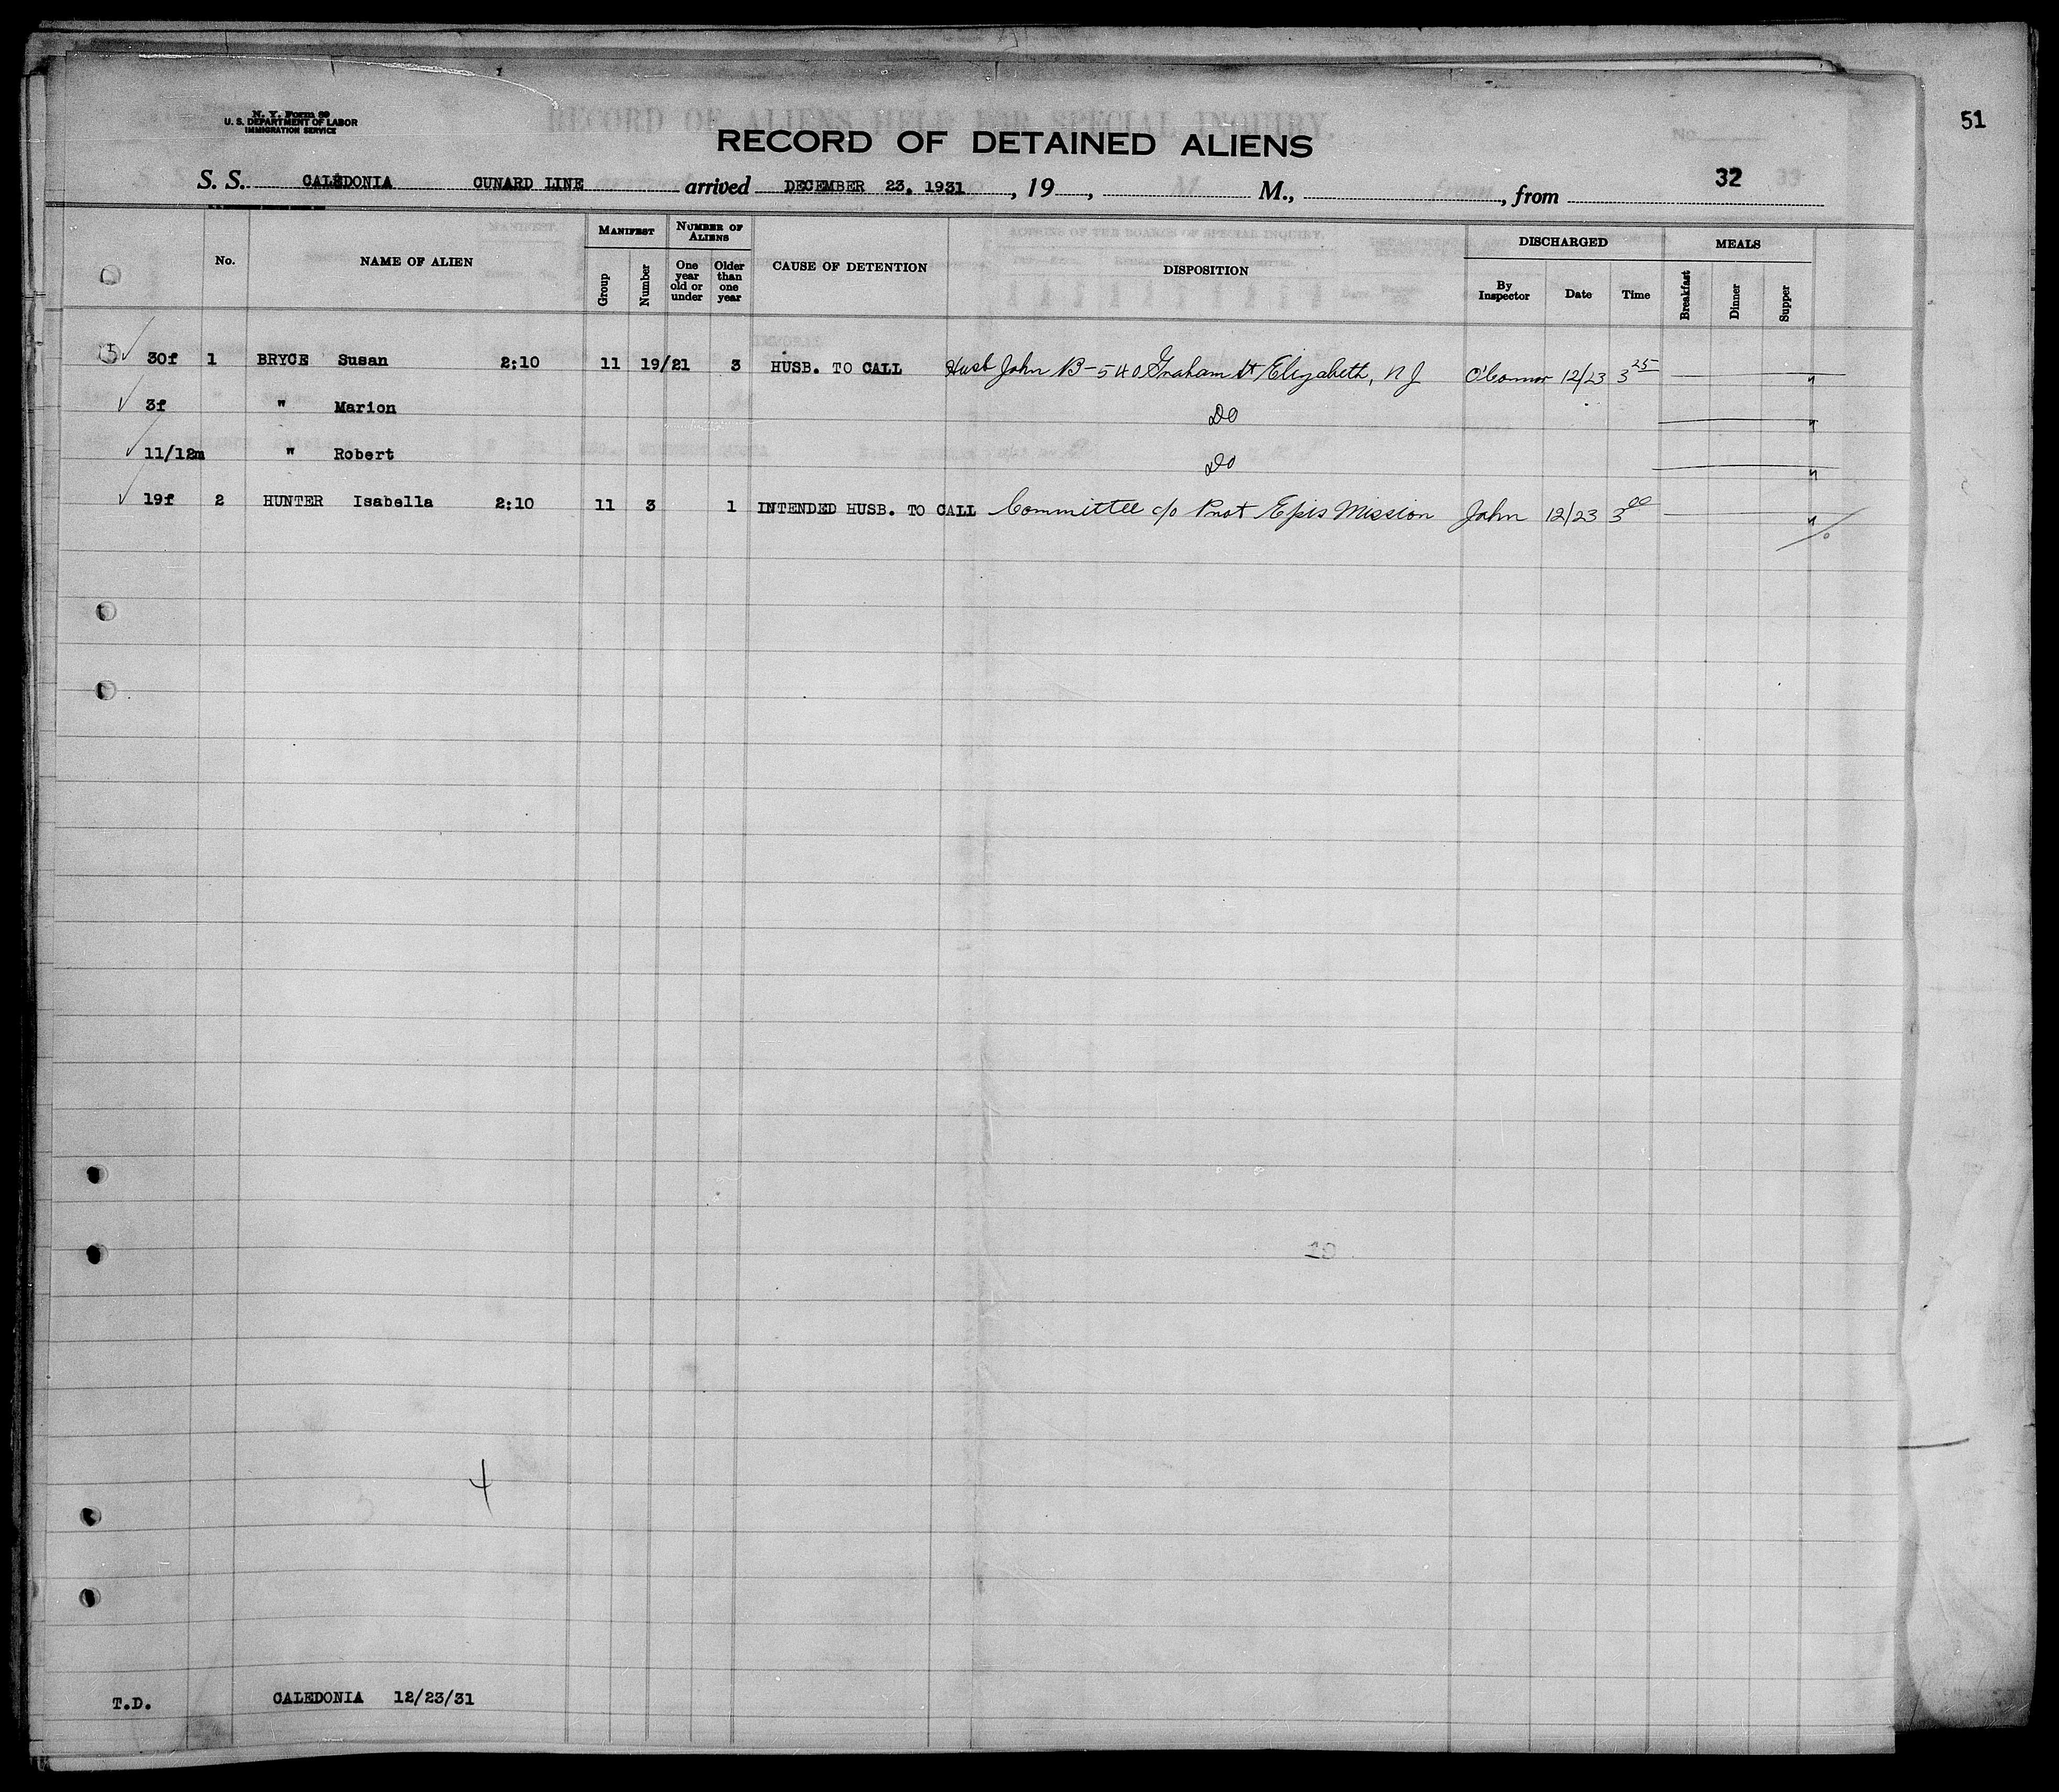 51
N. Y. Form 89
U. S. DEPARTMENT OF LABOR
IMMIGRATION SERVICE
RECORD OF DETAINED ALIENS
S. S. CALEDONIA CUNARD LINE arrived DECEMBER 23, 1931, 19, M., from 32
MANIFEST NUMBER OF ALIENS DISCHARGED MEALS
No. NAME OF ALIEN Group Number One year old or under Older than one year CAUSE OF DETENTION DISPOSITION By Inspector Date Time Breakfast Dinner Supper
30f 1 BRYCE Susan 2:10 11 19/21 3 HUSB. TO CALL Husb John B-540 Graham St Elizabeth, NJ O'Connor 12/23 3 25
3f " Marion Do
11/12m " Robert Do
19f 2 HUNTER Isabella 2:10 11 3 1 INTENDED HUSB. TO CALL Committee c/o Prot Epis Mission John 12/23 3 00
4
T.D. CALEDONIA 12/23/31